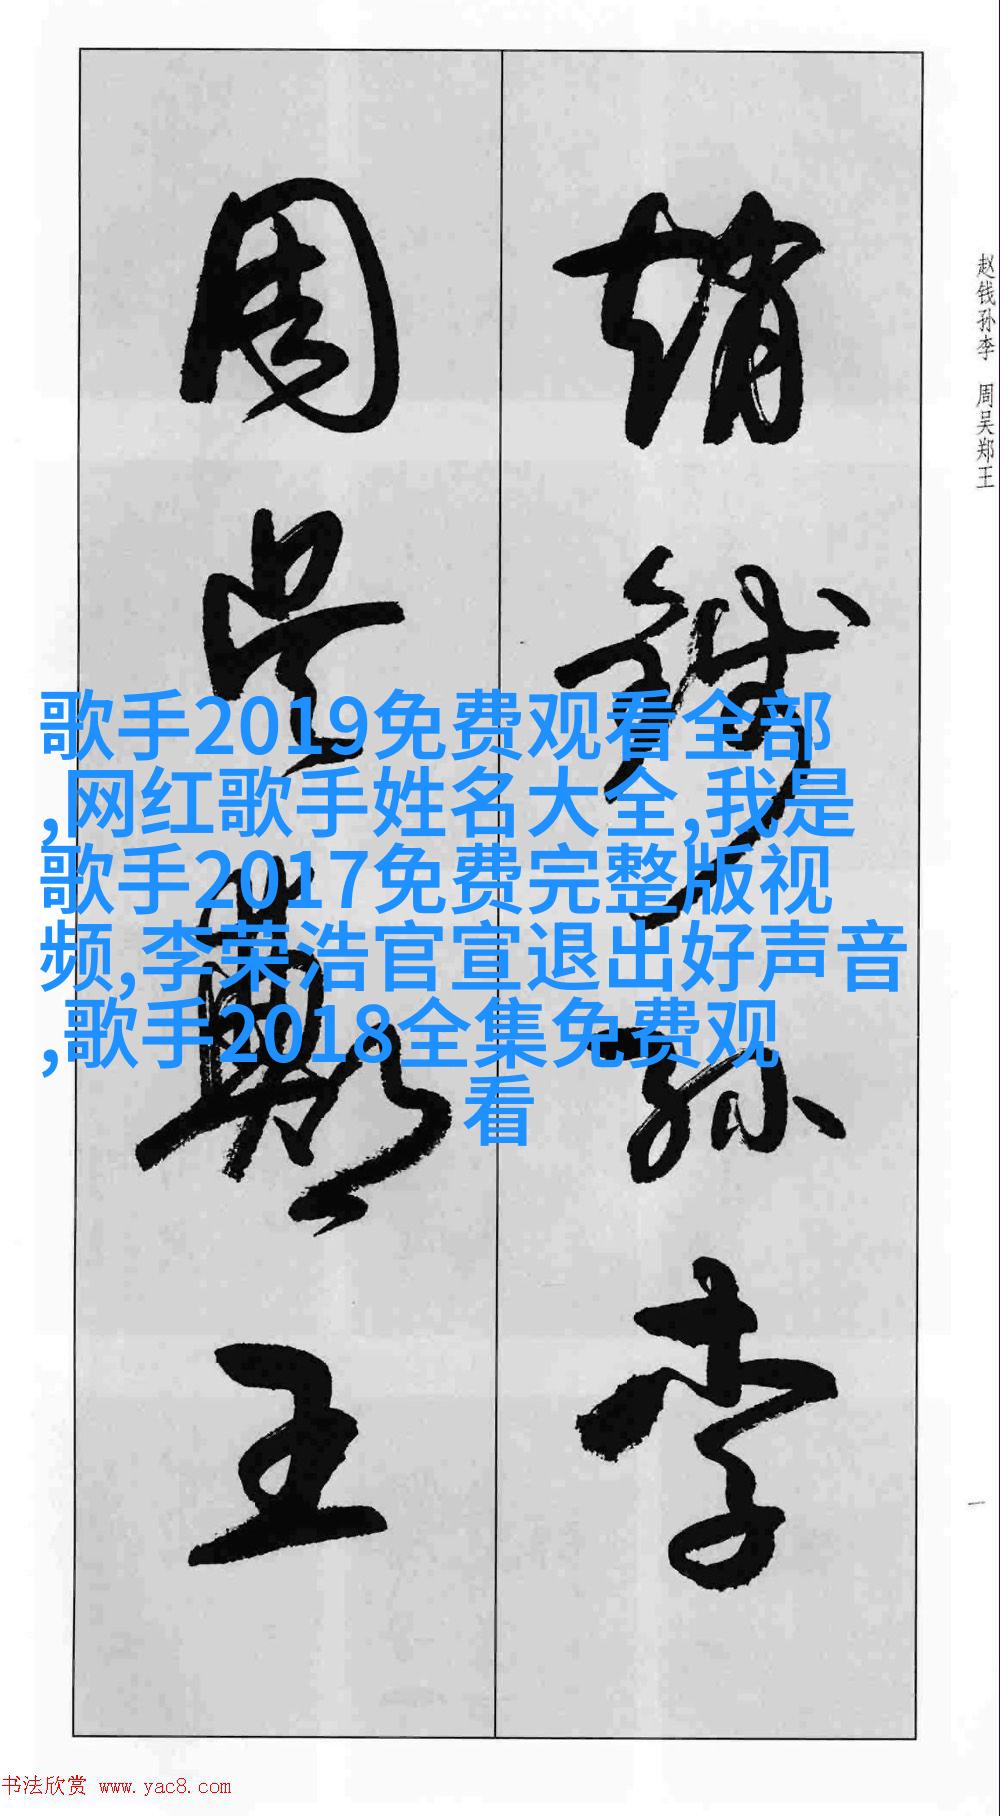 赵钱孙李 周吴郑王
趙錢孫李
周吳鄭王
歌手2019免费观看全部
,网红歌手姓名大全,我是
歌手2017免费完整版视
频,李荣浩官宣退出好声音
,歌手2018全集免费观
看
一
书法欣赏 www.yac8.com